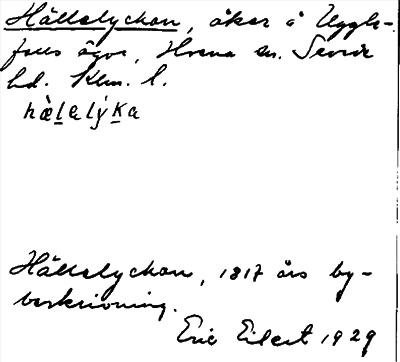 Hällelyckan, åker å Uggle-
falls ägor, Hvena sn. Sevede
hd. Klm. l.
hàlelýka
Hällelyckan, 1817 års by-
beskrivning.
Eric Eilert 1929